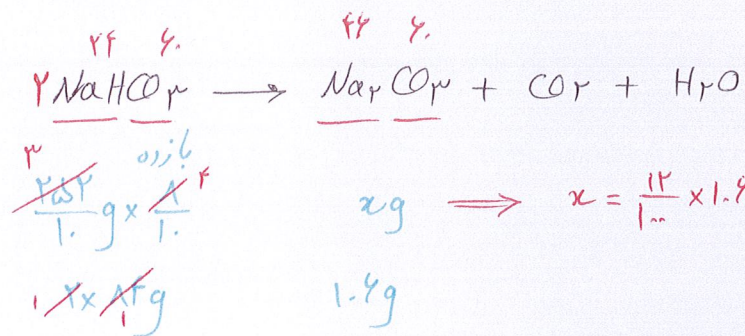 ۲۴ ۶۰ ۴۶ ۶۰
۲NaHCO۳ ⟶ Na۲CO۳ + CO۲ + H۲O
۳ بازده ۴
۲۵۲/۱۰ g × ۸/۱۰ xg ⟹ x = ۱۲/۱۰۰ × ۱۰۶
۱ ۲ × ۸۴g ۱ ۱۰۶g